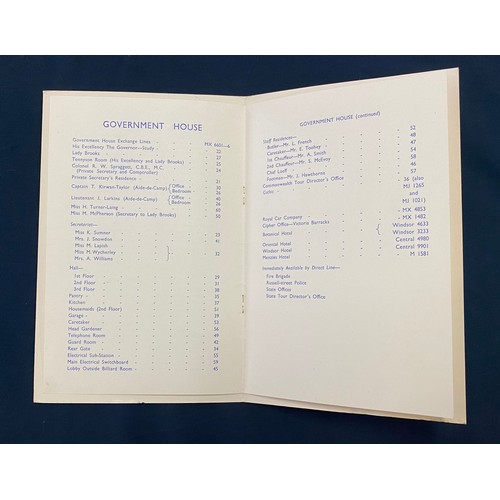 GOVERNMENT HOUSE
Government House Exchange Lines - MX 4601-6
His Excellency The Governor—Study - 22
Lady Brooks - 27
Tennyson Room (His Excellency and Lady Brooks) - 25
Colonel R. W. Spraggett, C.B.E., M.C. 24
(Private Secretary and Comptroller)
Private Secretary's Residence
Captain T. Kirwan-Taylor (Aide-de-Camp) { Office
Bedroom
Lieutenant J. Larkins (Aide-de-Camp) { Office - 40
Bedroom
Miss H. Turner-Laing
Miss M. McPherson (Secretary to Lady Brooks) 50
Secretaries—
Miss K. Sumner
Mrs. J. Snowdon - 41
Miss M. Lepish
Miss M. Wycherley
Mrs. A. Williams
Hall—
1st Floor - 29
2nd Floor - 31
3rd Floor - 38
Pantry - 35
Kitchen - 37
Housemaids (2nd Floor) - 51
Garage - 39
Caretaker - 53
Head Gardener - 56
Telephone Room - 49
Guard Room - 42
Rear Gate - 34
Electrical Sub-Station - 55
Main Electrical Switchboard - 59
Lobby Outside Billiard Room - 45
GOVERNMENT HOUSE (continued)
Staff Residences—
Butler—Mr. L. French - 52
Caretaker—Mr. E. Toohey - 48
1st Chauffeur—Mr. A. Smith - 47
2nd Chauffeur—Mr. S. McEvoy - 54
Chef Looff - 58
Footman—Mr. J. Hawthorne - 46
Commonwealth Tour Director's Office - 57
36 (also
MJ 1265
and
MJ 1021)
Royal Car Company - MX 4853
Cipher Office—Victoria Barracks - MX 1482
Botanical Hotel - { Windsor 4633
Windsor 3233
Oriental Hotel - Central 4980
Windsor Hotel - Central 9901
Menzies Hotel - M 1581
Immediately Available by Direct Line—
Fire Brigade
Russell-street Police
State Offices
State Tour Director's Office